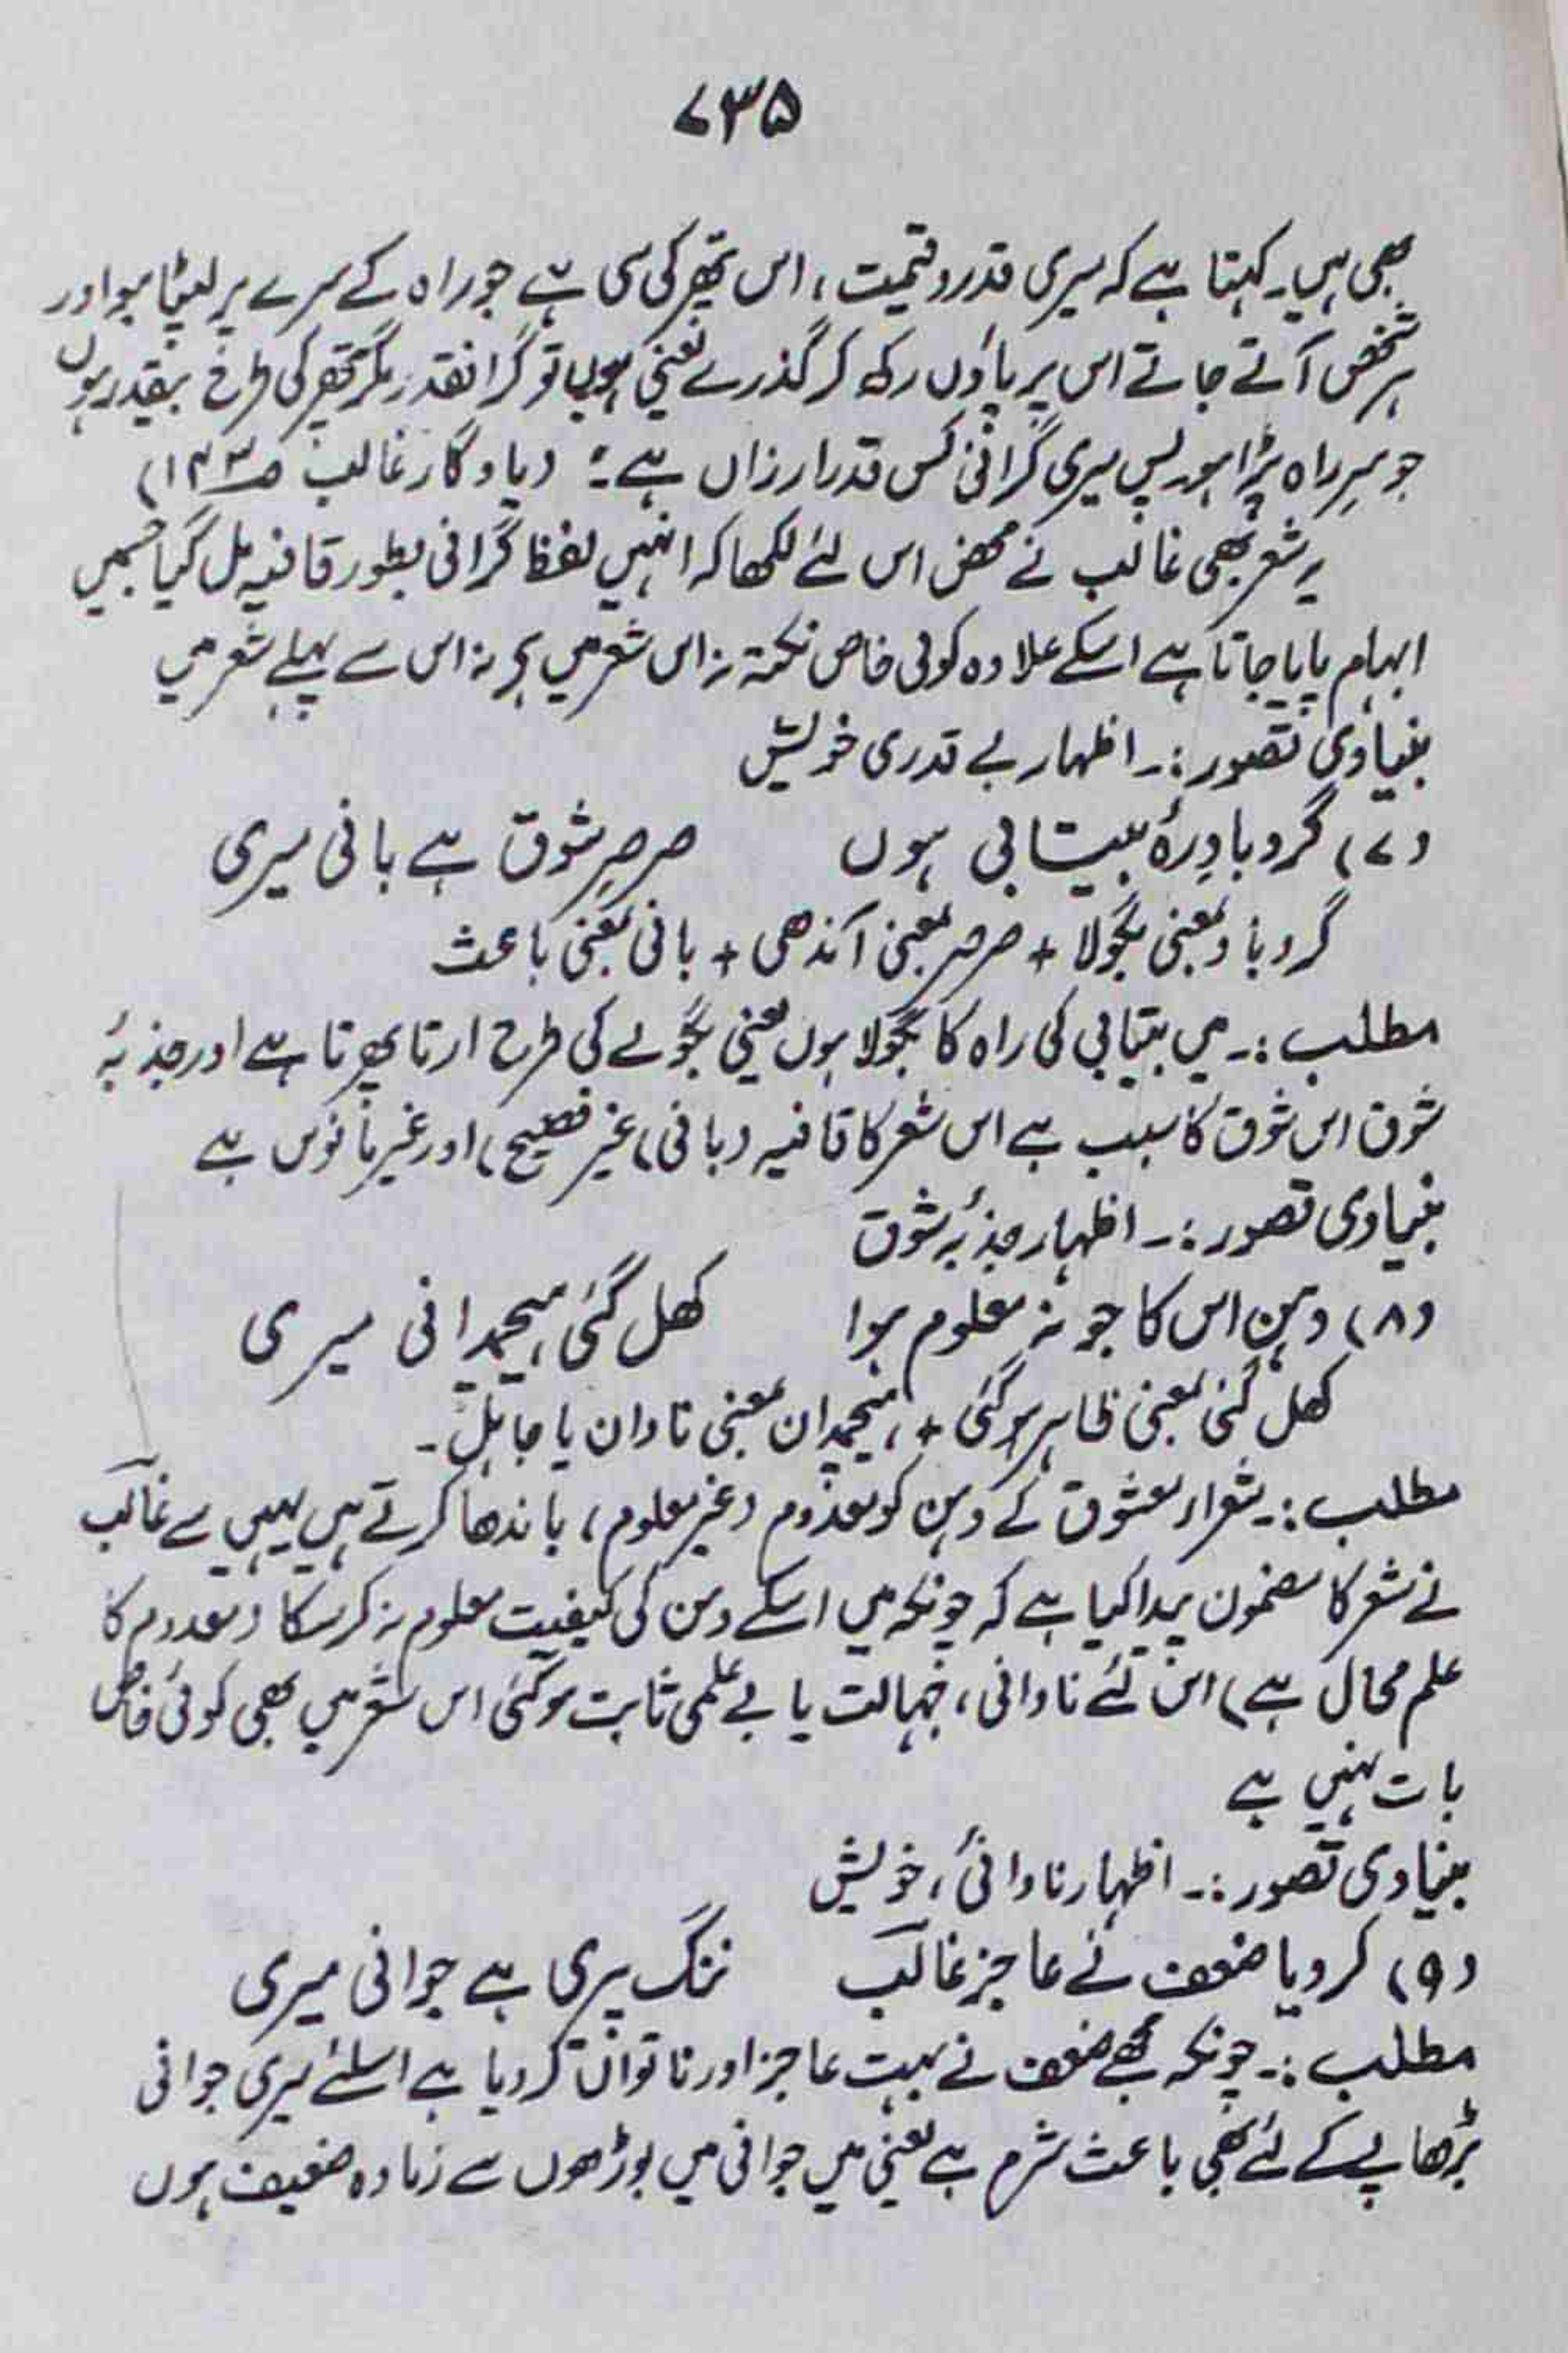 ۷۳۵
بھی ہیں۔ کہتا ہے کہ میری قدر و قیمت، اس پتھر کی سی ہے جو راہ کے سرے پر لیٹا ہو اور
ہر شخص آتے جاتے اس پر پاؤں رکھ کر گذرے یعنی ہوں تو گرانقدر مگر پتھر کی طرح بیقدر ہوں
جو سرِ راہ پڑا ہو۔ پس میری گرانی کس قدر ارزاں ہے؛ (یادگار غالب ص۱۳۳)
یہ شعر بھی غالب نے محض اس لئے لکھا کہ انہیں لفظ گرانی بطور قافیہ مل گیا جسمیں
ابہام پایا جاتا ہے اسکے علاوہ کوئی خاص نکتہ نہ اس شعر میں ہے نہ اس سے پہلے شعر میں
بنیادی تصور:۔ اظہار بے قدری خویش
(۷) گرد بادِ رۂ بیتابی ہوں صرصرِ شوق ہے بانی میری
گرد باد بمعنی بگولا + صرصر بمعنی آندھی + بانی بمعنی باعث
مطلب:۔ میں بیتابی کی راہ کا بگولا ہوں یعنی بگولے کی طرح اڑتا پھرتا ہے اور جذبۂ
شوق اس شوق کا سبب ہے اس شعر کا قافیہ (بانی) غیر فصیح) اور غیر مانوس ہے
بنیادی تصور:۔ اظہار جذبۂ شوق
(۸) دہن اس کا جو نہ معلوم ہوا کھل گئی ہیچمدانی میری
کھل گئی بمعنی ظاہر ہو گئی +، ہیچمدان بمعنی نادان یا جاہل۔
مطلب:۔ شعراء معشوق کے دہن کو معدوم (غیر معلوم) باندھا کرتے ہیں یہیں سے غالب
نے شعر کا مضمون پیدا کیا ہے کہ چونکہ میں اسکے دہن کی کیفیت معلوم نہ کر سکا (معدوم کا
علم محال ہے) اس لئے نادانی، جہالت یا بے علمی ثابت ہو گئی اس شعر میں بھی کوئی خاص
بات نہیں ہے
بنیادی تصور:۔ اظہار نادانیٔ، خویش
(۹) کر دیا ضعف نے عاجز غالب ننگ پیری ہے جوانی میری
مطلب:۔ چونکہ مجھے ضعف نے بہت عاجز اور ناتواں کر دیا ہے اسلئے میری جوانی
بڑھاپے کے لئے بھی باعث شرم ہے یعنی میں جوانی میں بوڑھوں سے زیادہ ضعیف ہوں